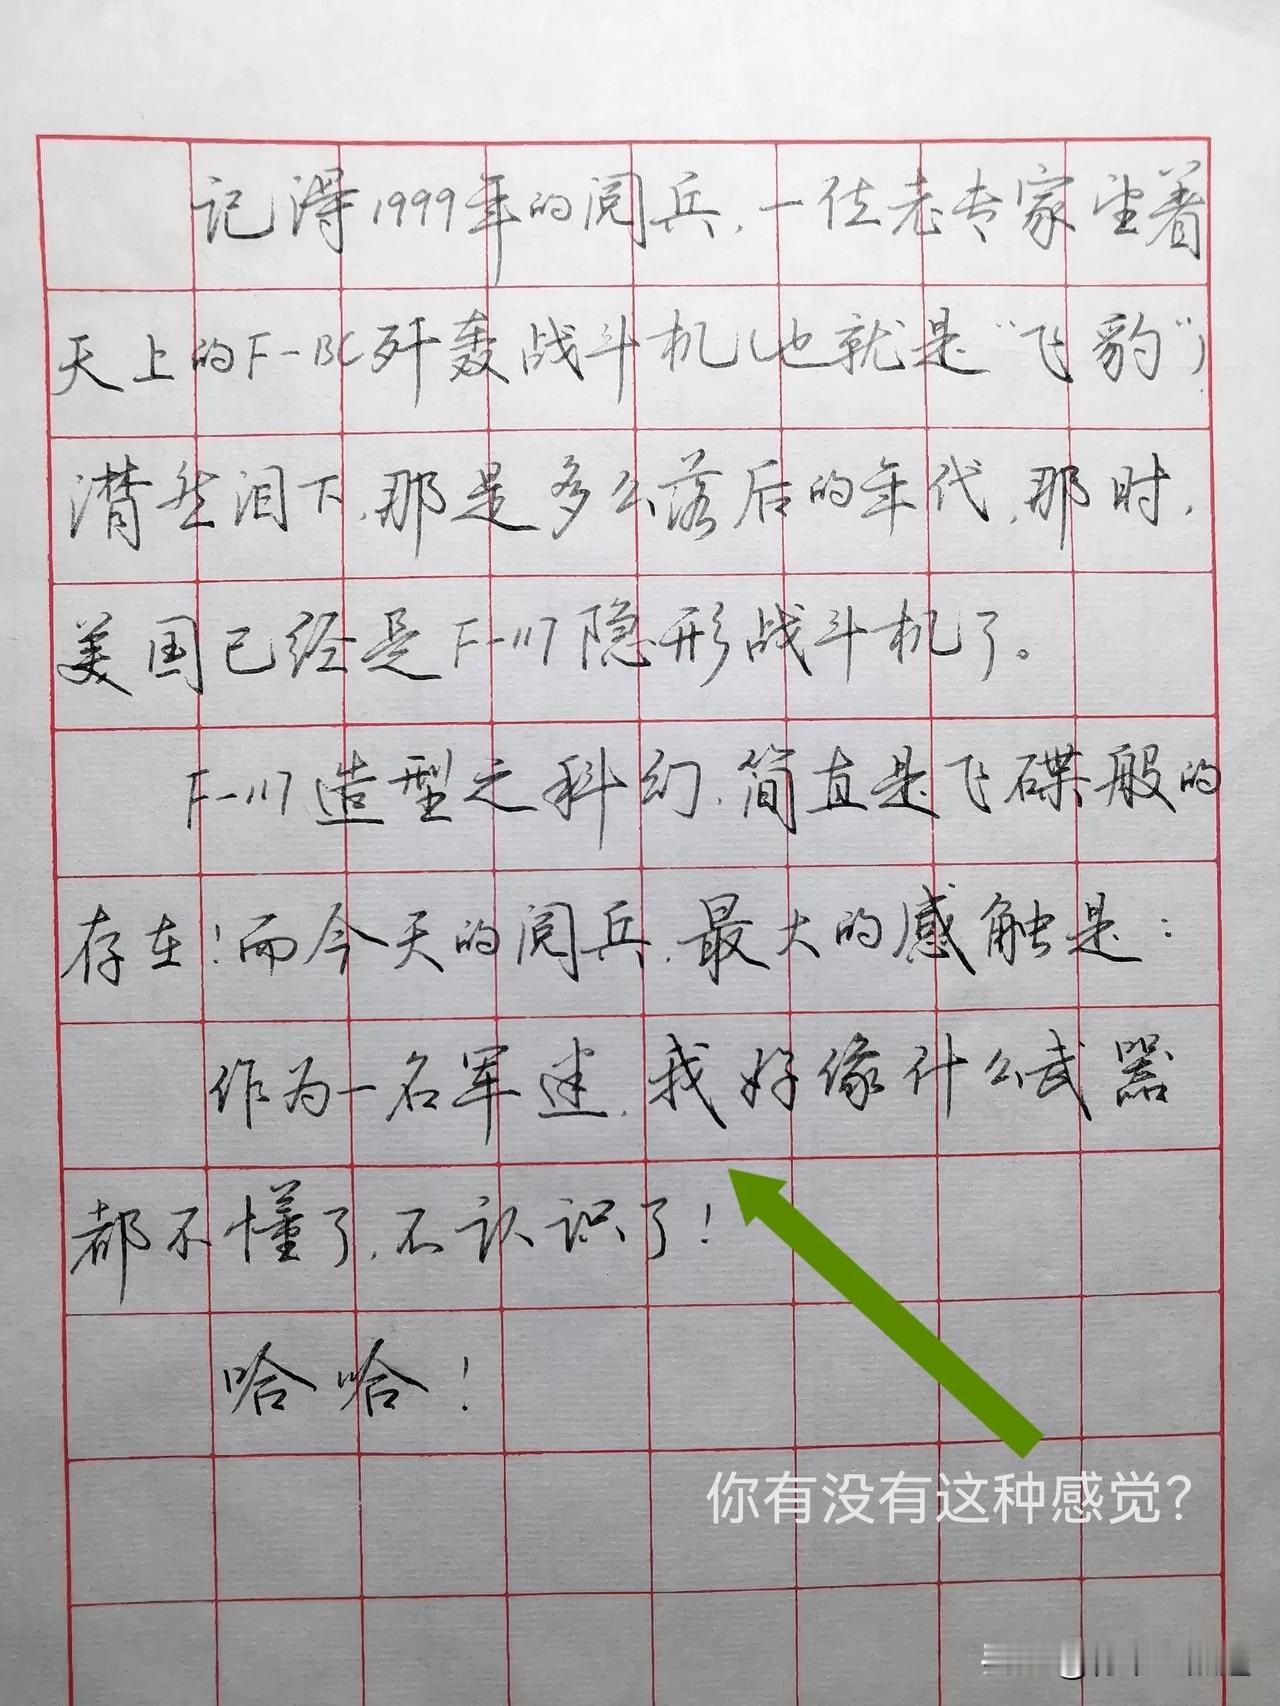 记得1999年的阅兵，一位老专家望着
天上的F-BC歼轰战斗机(也就是“飞豹”)
潸然泪下，那是多么落后的年代，那时，
美国已经是F-117隐形战斗机了。
F-117造型之科幻，简直是飞碟般的
存在！而今天的阅兵，最大的感触是：
作为一名军迷，我好像什么武器
都不懂了，不认识了！
哈哈！
你有没有这种感觉？